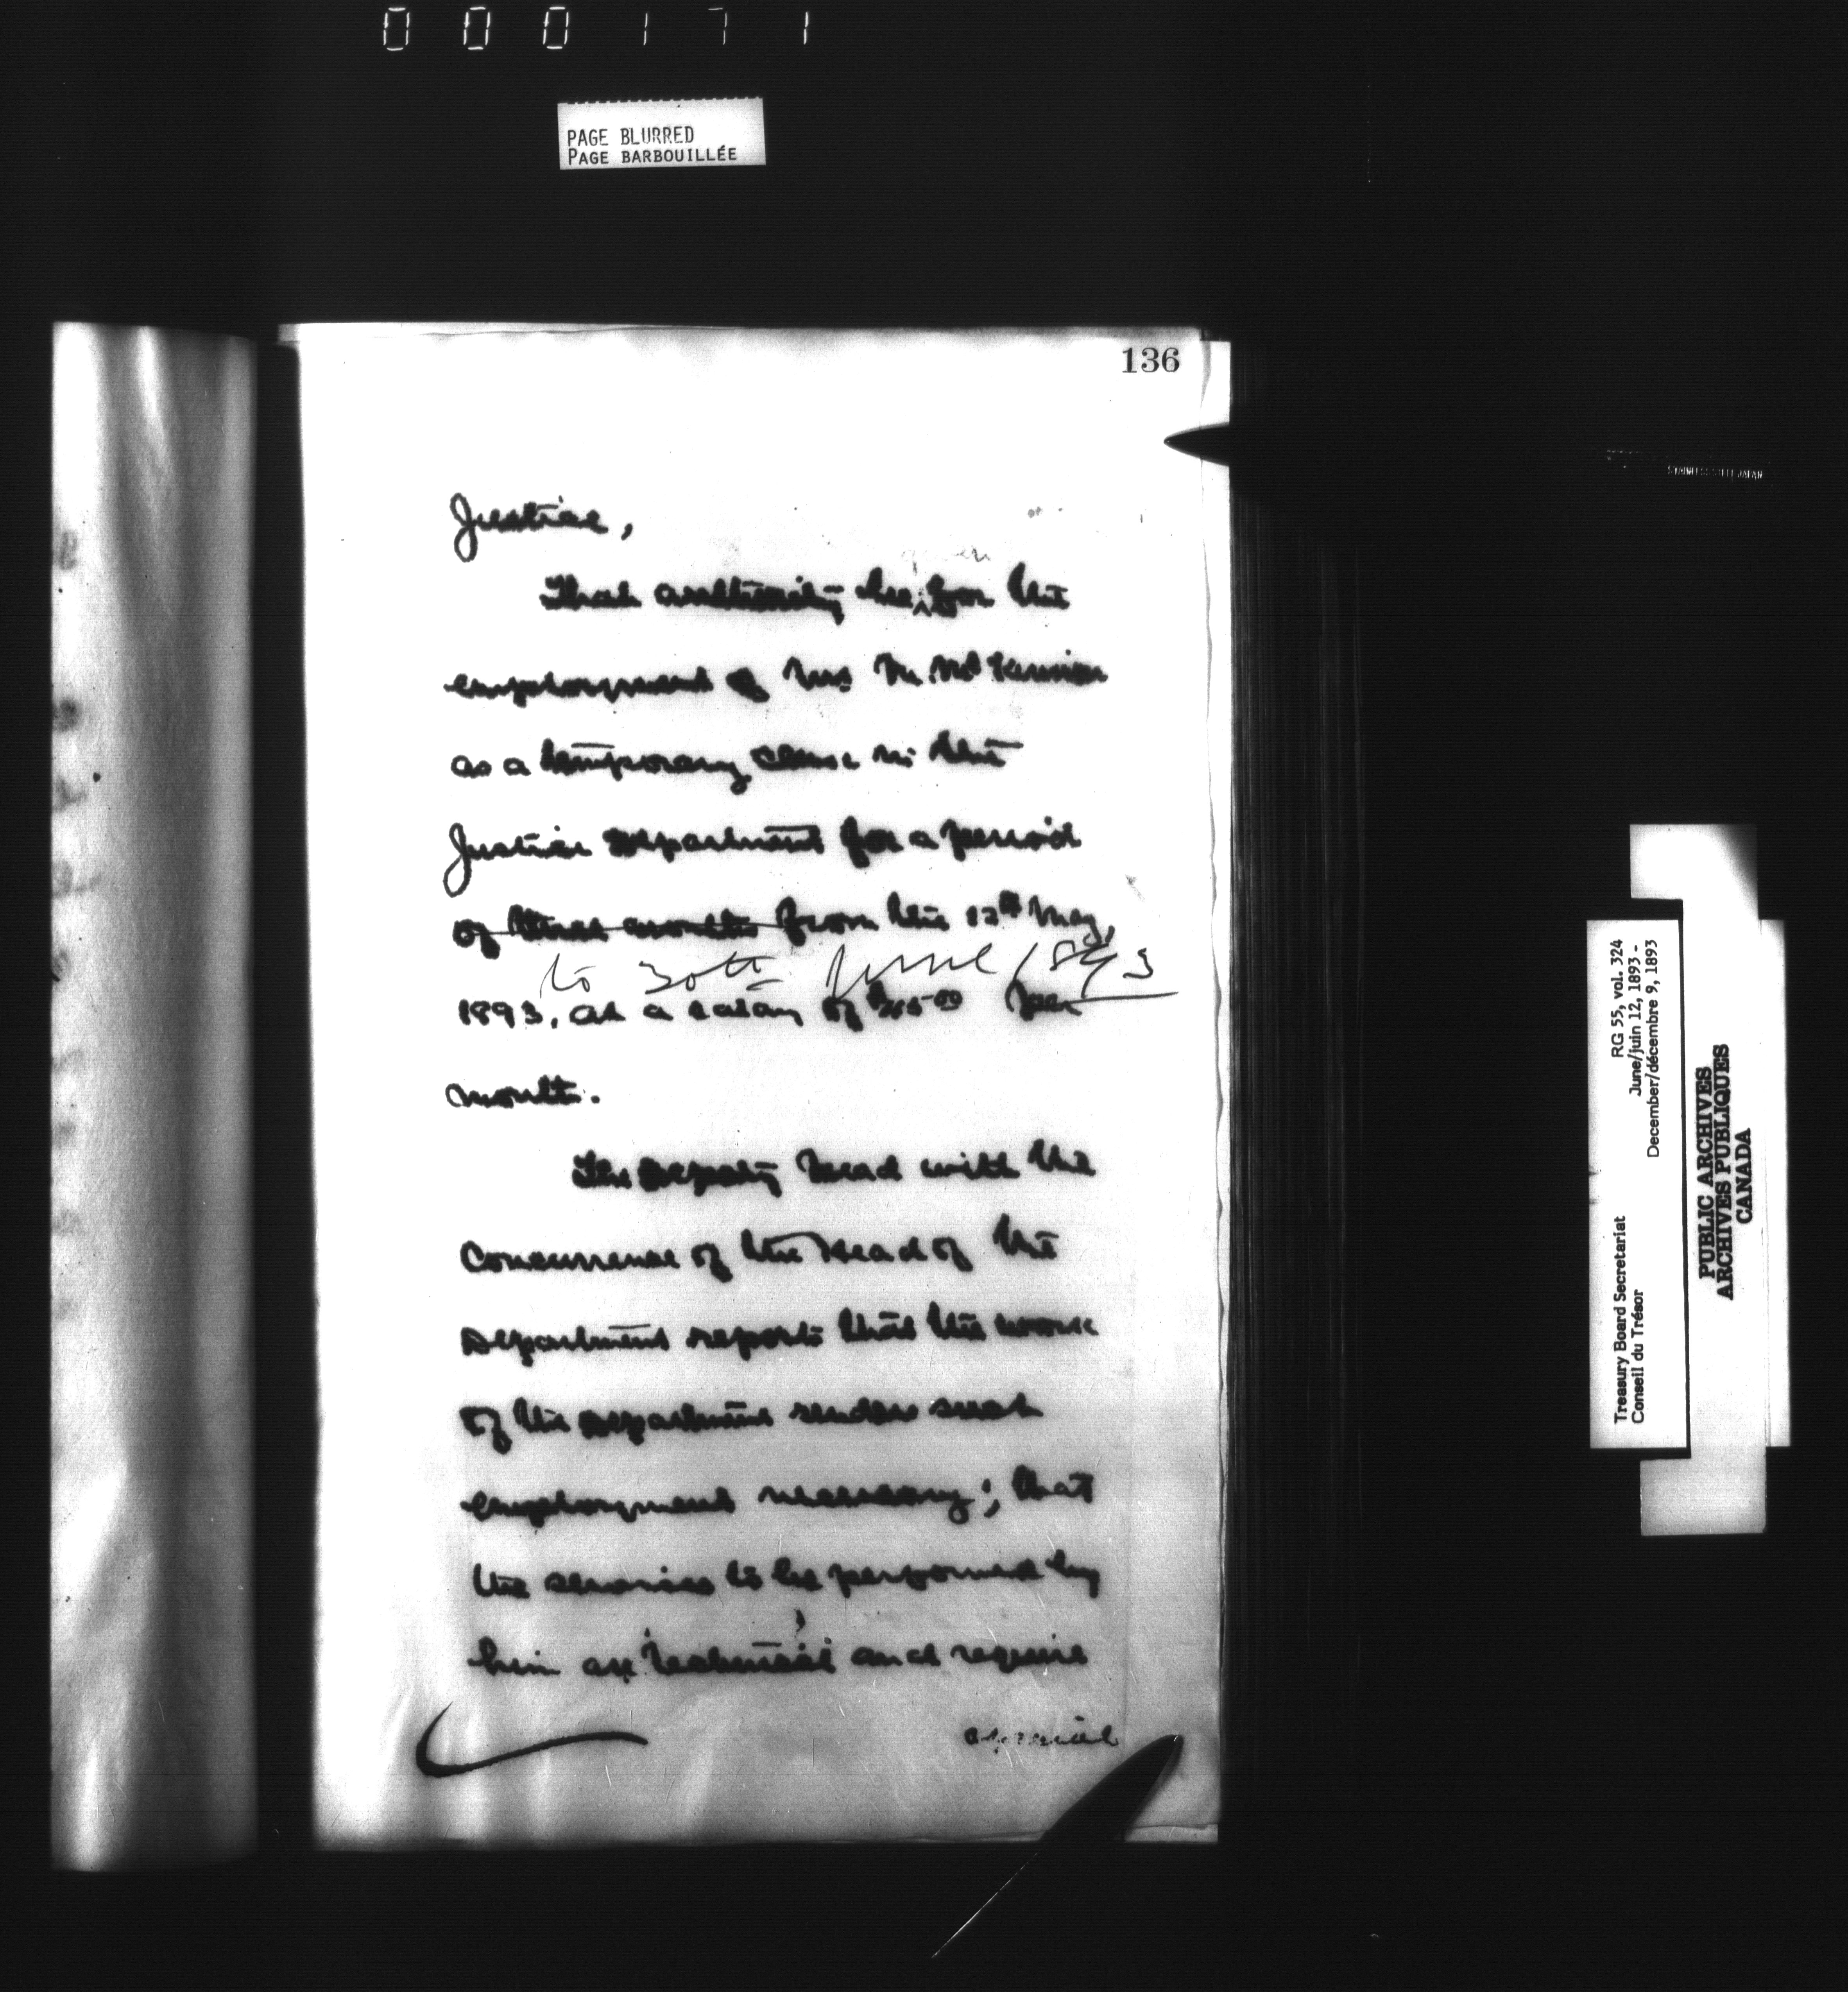 000171
PAGE BLURRED
PAGE BARBOUILLÉE
136
Justice,
given
That authority be ^ for the
employment of Mr. M.
as a temporary clerk in the
Justice Department for a period
of three months from the 12th May,
to 30th June 1893
1893, at a salary of per
month.
The Deputy Head with the
Concurrence of the Head of the
Department reports that the work
of the Department renders such
employment necessary; that
the services to be performed by
him are technical and require
special
STAINLESS STEEL JAPAN
RG 55, vol. 324
June/juin 12, 1893 -
December/décembre 9, 1893
Treasury Board Secretariat
Conseil du Trésor
PUBLIC ARCHIVES
ARCHIVES PUBLIQUES
CANADA